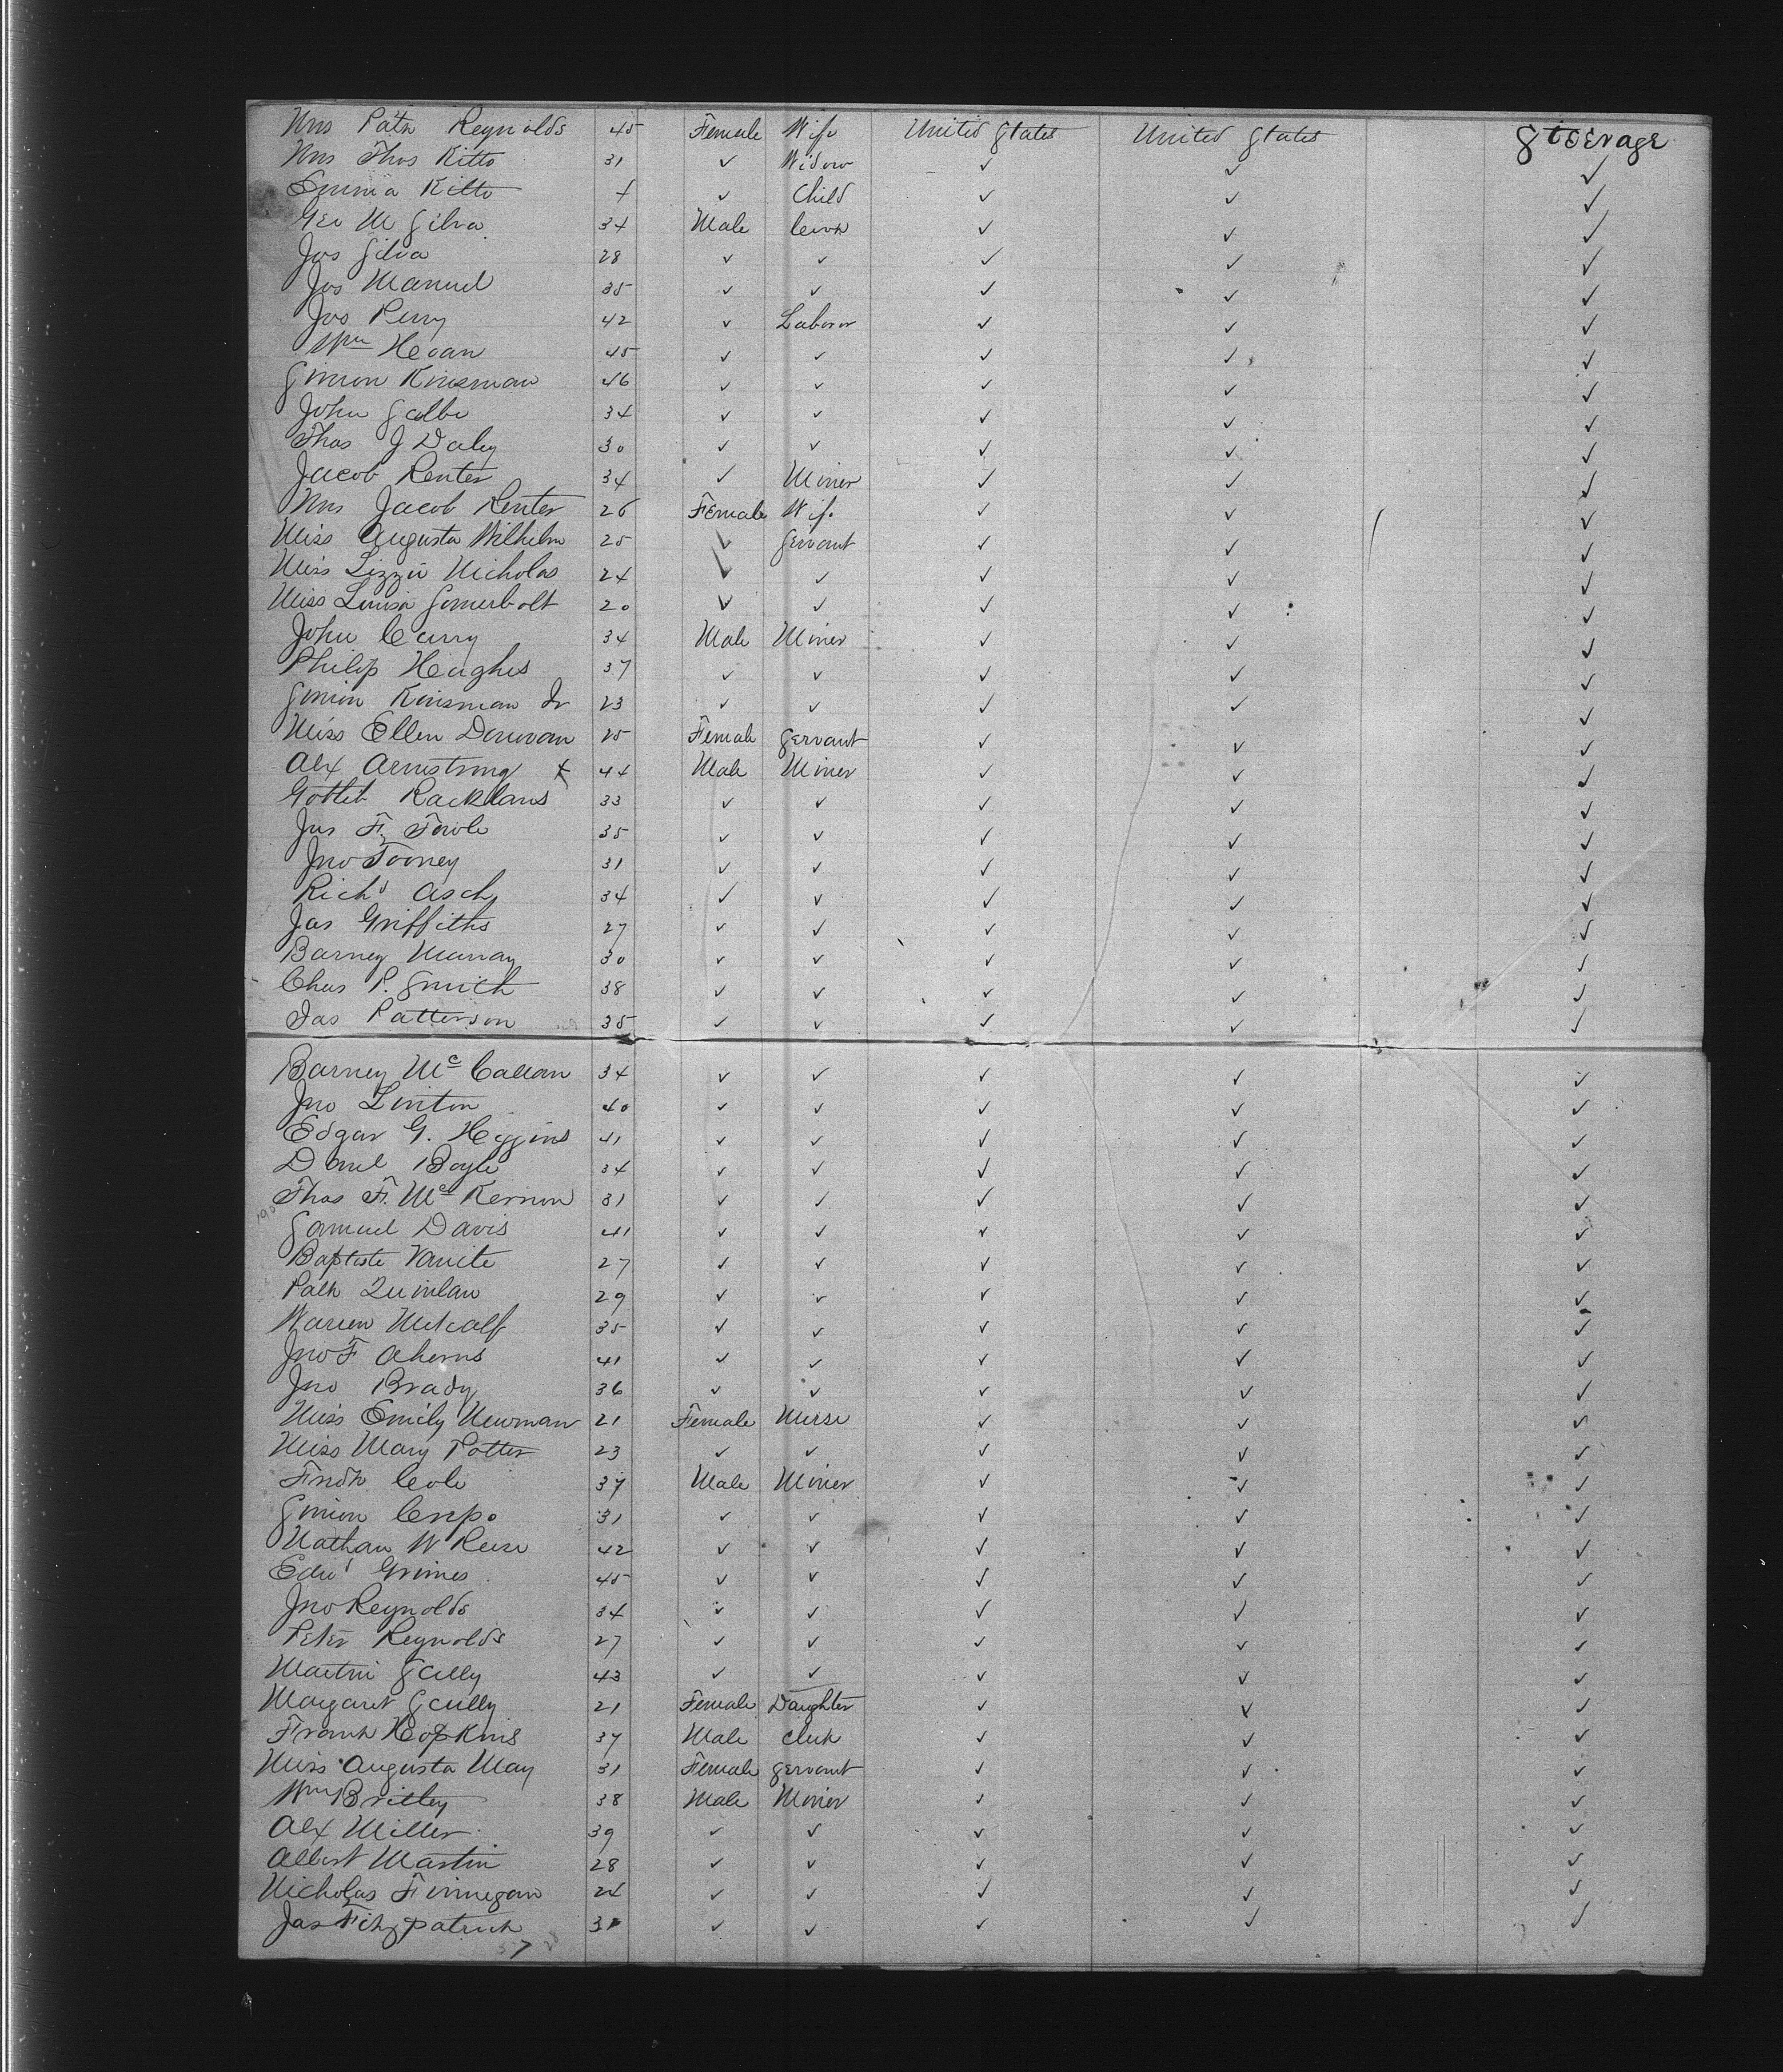 Mrs Patk Reynolds 45 Female Wife United States United States Steerage
Mrs Thos Kitto 31 ✓ Widow ✓ ✓ ✓
Emma Kitto 4 ✓ Child ✓ ✓ ✓
Geo M Silva 34 Male ✓ ✓ ✓
Jos Silva 28 ✓ ✓ ✓ ✓ ✓
Jos Manuel 35 ✓ ✓ ✓ ✓ ✓
Jos Perry 42 ✓ Laborer ✓ ✓ ✓
Wm Hegan 45 ✓ ✓ ✓ ✓ ✓
Simon Kinsman 46 ✓ ✓ ✓ ✓ ✓
John 34 ✓ ✓ ✓ ✓ ✓
Thos J Daley 30 ✓ ✓ ✓ ✓ ✓
Jacob Renter 34 ✓ Miner ✓ ✓ ✓
Mrs Jacob Renter 26 Female Wife ✓ ✓ ✓
Miss Augusta Wilhelm 25 ✓ Servant ✓ ✓ ✓
Miss Lizzie Nicholas 24 ✓ ✓ ✓ ✓ ✓
Miss Louisa Somerbolt 20 ✓ ✓ ✓ ✓ ✓
John Curry 34 Male Miner ✓ ✓ ✓
Philip Hughes 37 ✓ ✓ ✓ ✓ ✓
Simon Kinsman Jr 23 ✓ ✓ ✓ ✓ ✓
Miss Ellen Donovan 25 Female Servant ✓ ✓ ✓
Alex Armstrong x 44 Male Miner ✓ ✓ ✓
Gottleb Racklaus 33 ✓ ✓ ✓ ✓ ✓
Jas F. Towle 35 ✓ ✓ ✓ ✓ ✓
Jno Tooney 31 ✓ ✓ ✓ ✓ ✓
Richd Asch 34 ✓ ✓ ✓ ✓ ✓
Jas Griffiths 27 ✓ ✓ ✓ ✓ ✓
Barney Murray 30 ✓ ✓ ✓ ✓ ✓
Chas P. Smith 38 ✓ ✓ ✓ ✓ ✓
Jas Patterson 35 ✓ ✓ ✓ ✓ ✓
Barney McCallan 34 ✓ ✓ ✓ ✓ ✓
Jno Linton 40 ✓ ✓ ✓ ✓ ✓
Edgar G. Higgins 41 ✓ ✓ ✓ ✓ ✓
Danl Boyle 34 ✓ ✓ ✓ ✓ ✓
Thos F. McKernon 31 ✓ ✓ ✓ ✓ ✓
Samuel Davis 41 ✓ ✓ ✓ ✓ ✓
Baptiste 27 ✓ ✓ ✓ ✓ ✓
Patk Quinlan 29 ✓ ✓ ✓ ✓ ✓
Warren Metcalf 35 ✓ ✓ ✓ ✓ ✓
Jno F Aherns 41 ✓ ✓ ✓ ✓ ✓
Jno Brady 36 ✓ ✓ ✓ ✓ ✓
Miss Emily Newman 21 Female Nurse ✓ ✓ ✓
Miss Mary Potter 23 ✓ ✓ ✓ ✓ ✓
Fredk Cole 37 Male Miner ✓ ✓ ✓
Simon Crespo 31 ✓ ✓ ✓ ✓ ✓
Nathan W Reese 42 ✓ ✓ ✓ ✓ ✓
Edwd Grimes 45 ✓ ✓ ✓ ✓ ✓
Jno Reynolds 34 ✓ ✓ ✓ ✓ ✓
Peter Reynolds 27 ✓ ✓ ✓ ✓ ✓
Martin Scully 43 ✓ ✓ ✓ ✓ ✓
Margaret Scully 21 Female Daughter ✓ ✓ ✓
Frank Hopkins 37 Male Clerk ✓ ✓ ✓
Miss Augusta May 31 Female Servant ✓ ✓ ✓
Wm Britley 38 Male Miner ✓ ✓ ✓
Alex Miller 39 ✓ ✓ ✓ ✓ ✓
Albert Martin 28 ✓ ✓ ✓ ✓ ✓
Nicholas Finnegan 24 ✓ ✓ ✓ ✓ ✓
Jas Fitzpatrick ✓ ✓ ✓ ✓ ✓